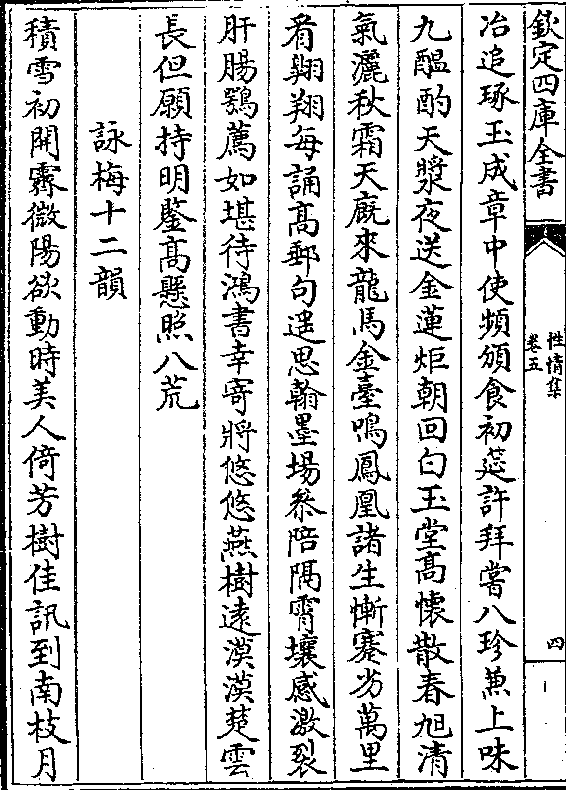 欽定四庫全書
性情集
卷五
四
冶追琢玉成章中使頻頒食初筵許拜嘗八珍兼上味
九醖酌天漿夜送金蓮炬朝回白玉堂高懷散春旭清
氣灑秋霜天廐來龍馬金臺鳴鳳凰諸生慚蹇劣萬里
看翺翔每誦髙郵句遥思翰墨場叅陪隔霄壤感激裂
肝腸鶚薦如堪待鴻書幸寄將悠悠燕樹遠漠漠楚雲
長但願持明鍳髙懸照八荒
詠梅十二韻
積雪初開霽微陽欲動時美人倚芳樹佳訊到南枝月